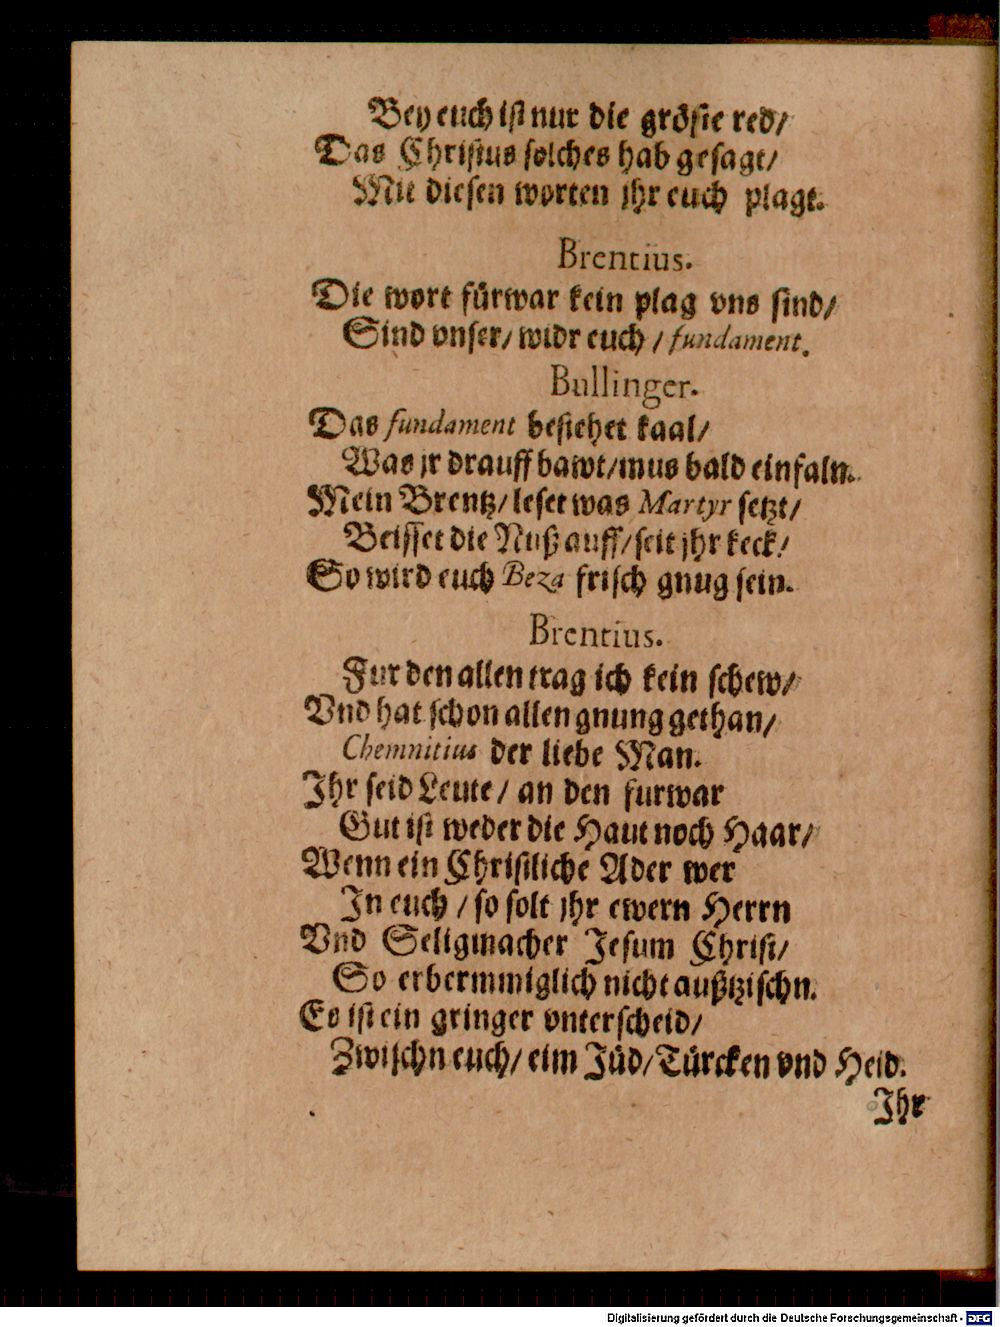 Bey euch ist nur die gröste red/
Das Christus solches hab gesagt/
Mit diesen worten jhr euch plagt.
Brentius.
Die wort fürwar kein plag vns sind/
Sind vnser/ widr euch / fundament.
Bullinger.
Das fundament bestehet kaal/
Was jr drauff bawt/mus bald einfaln.
Mein Brentz/ leset was Martyr setzt/
Beisset die Nuß auff/seit jhr keck/
So wird euch Beza frisch gnug sein.
Brentius.
Fur den allen trag ich kein schew/
Vnd hat schon allen gnung gethan/
Chemnitius der liebe Man.
Ihr seid Leute/ an den furwar
Gut ist weder die Haut noch Haar/
Wenn ein Christliche Ader wer
In euch / so solt jhr ewern Herrn
Vnd Seligmacher Jesum Christ/
So erbermmiglich nicht außtzischn.
Es ist ein gringer vnterscheid/
Zwischn euch/ eim Jüd/Türcken vnd Heid.
Ihr
Digitalisierung gefördert durch die Deutsche Forschungsgemeinschaft - DFG